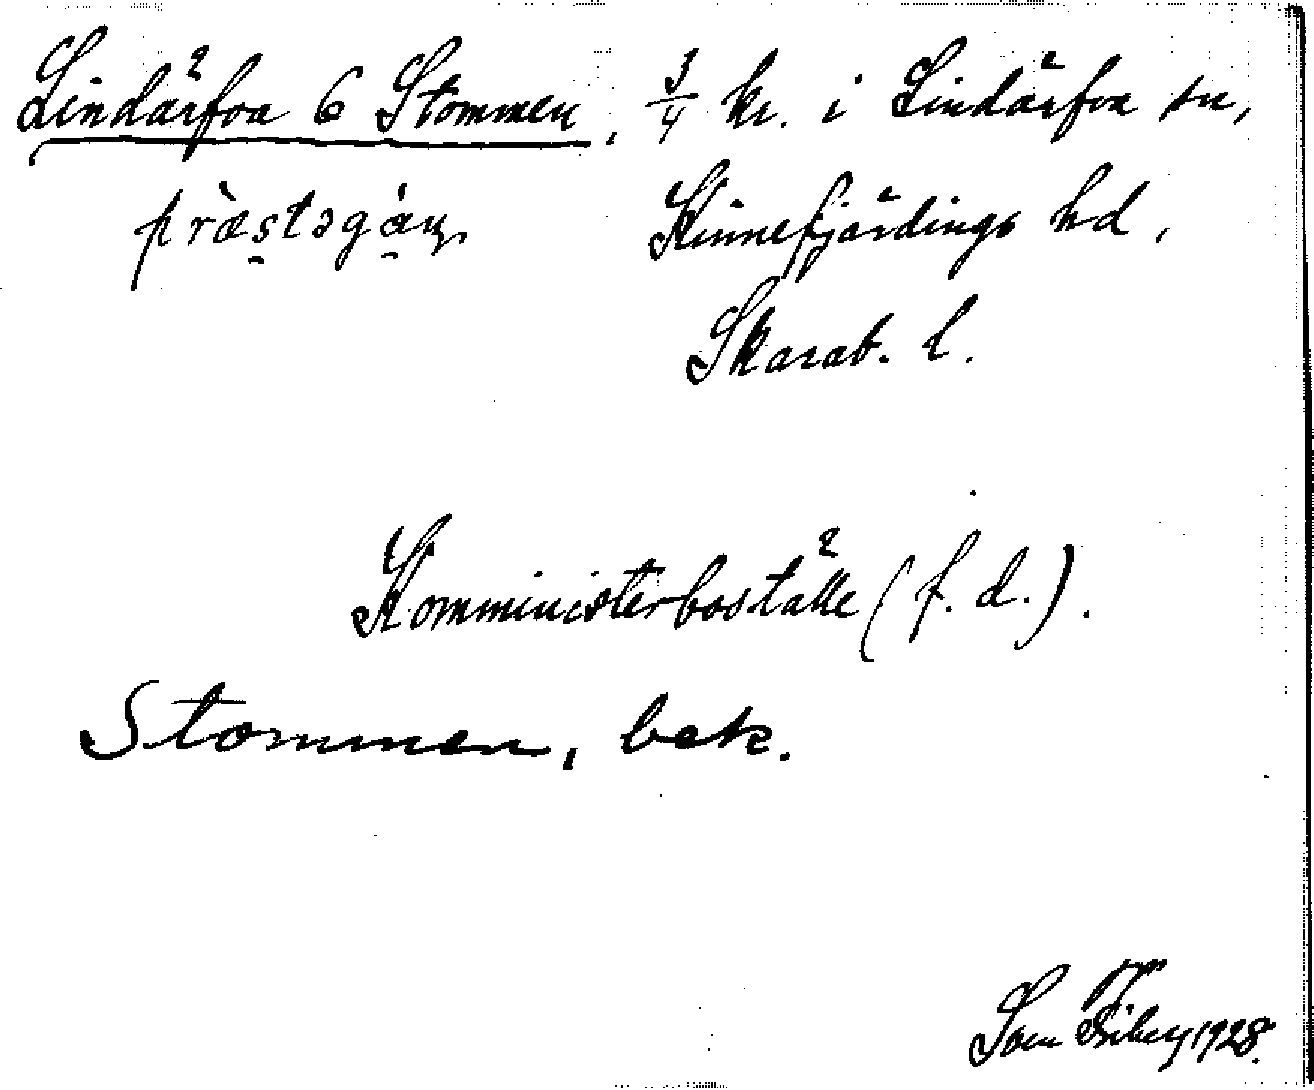 Lindärfva 6 Stommen, 3/4 kr. i Lindärfva sn,
Kinnefjärdings hd,
Skarab. l.
Komministerboställe (f. d.).
Stommen, bek.
1928.